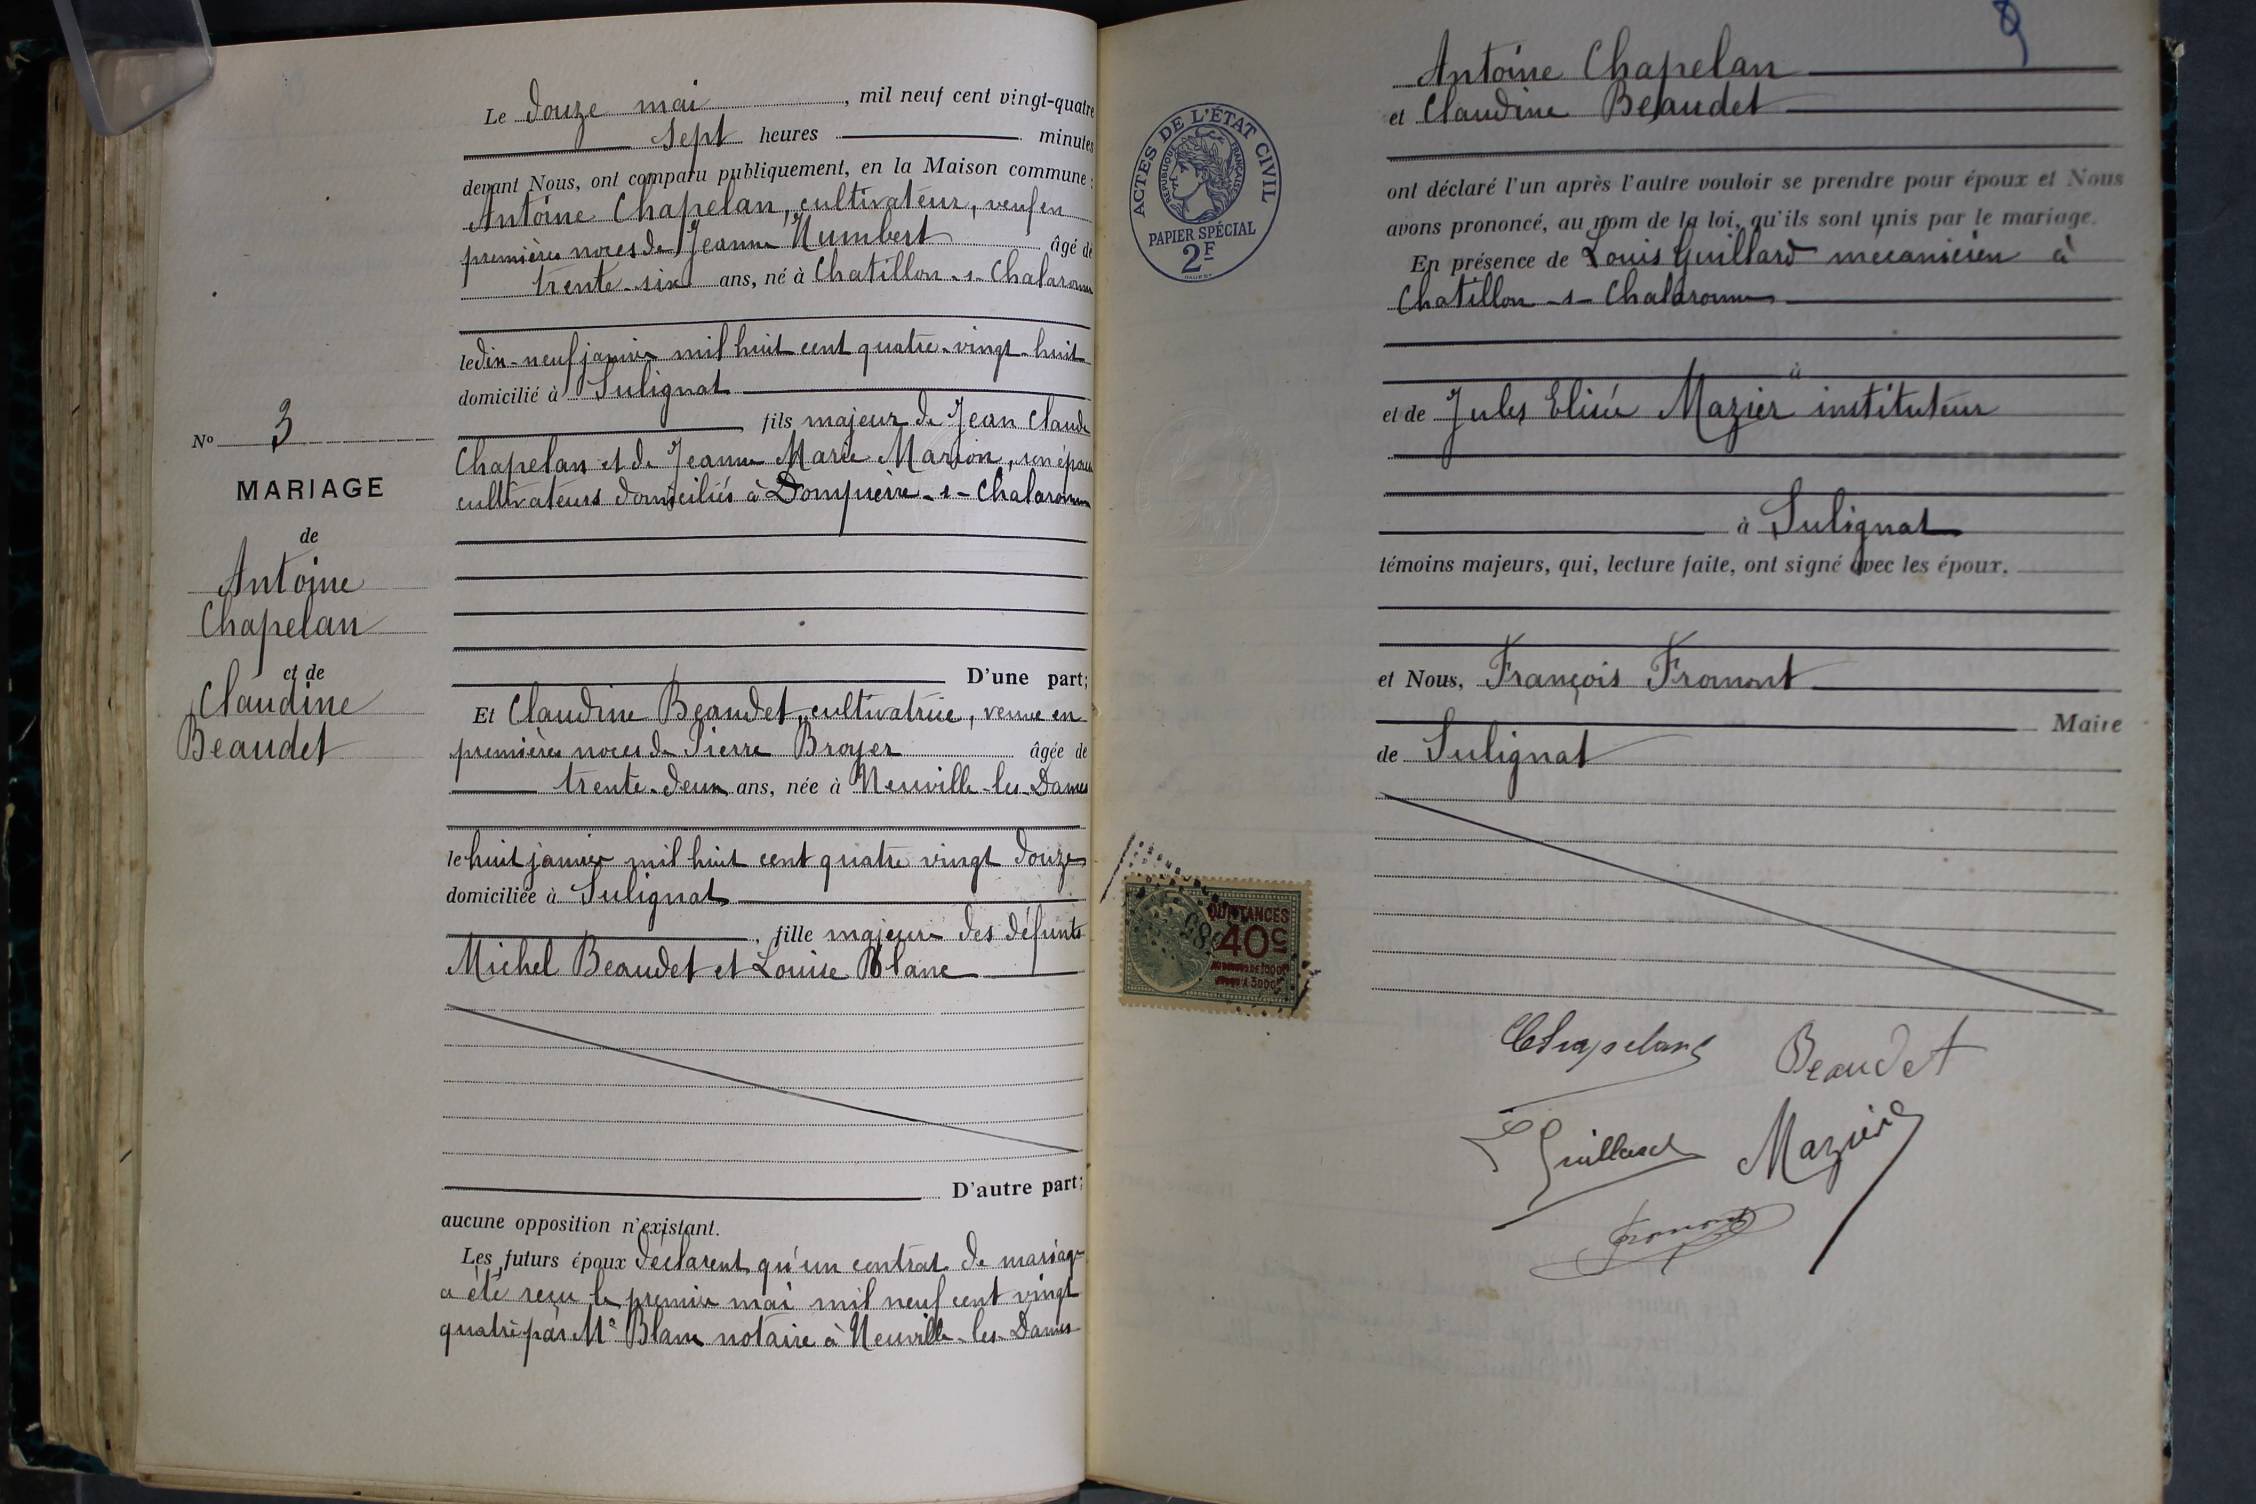 Le douze mai, mil neuf cent vingt-quatre
sept heures minutes
devant Nous, ont comparu publiquement, en la Maison commune :
Antoine Chapelan, cultivateur, veuf en
premières noces de Jeanne Humbert âgé de
trente-six ans, né à Chatillon-s-Chalaronne
le dix-neuf janvier mil huit cent quatre-vingt-huit
domicilié à Sulignat
fils majeur de Jean Claude
Chapelan et de Jeanne Marie Marion, son épouse
cultivateurs domiciliés à Dompierre-s-Chalaronne
D'une part;
Et Claudine Beaudet, cultivatrice, veuve en
premières noces de Pierre Broyer âgée de
trente-deux ans, née à Neuville-les-Dames
le huit janvier mil huit cent quatre vingt douze
domiciliée à Sulignat
, fille majeure des défunts
Michel Beaudet et Louise Blanc
D'autre part;
aucune opposition n'existant.
Les futurs époux déclarent qu'un contrat de mariage
a été reçu le premier mai mil neuf cent vingt
quatre par Me Blanc notaire à Neuville-les-Dames
No 3
MARIAGE
de
Antoine
Chapelan
et de
Claudine
Beaudet
Antoine Chapelan
et Claudine Beaudet
ont déclaré l'un après l'autre vouloir se prendre pour époux et Nous
avons prononcé, au nom de la loi, qu'ils sont unis par le mariage.
En présence de Louis Guillard mécanicien à
Chatillon-s-Chalaronne
à
et de Jules Elisée Mazier instituteur
à Sulignat
témoins majeurs, qui, lecture faite, ont signé avec les époux,
et Nous, François Fromont
Maire
de Sulignat
Chapelan
Beaudet
Guillard
Mazier
Fromont
ACTES DE L'ÉTAT CIVIL
RÉPUBLIQUE FRANÇAISE
PAPIER SPÉCIAL
2F
QUITTANCES
40c